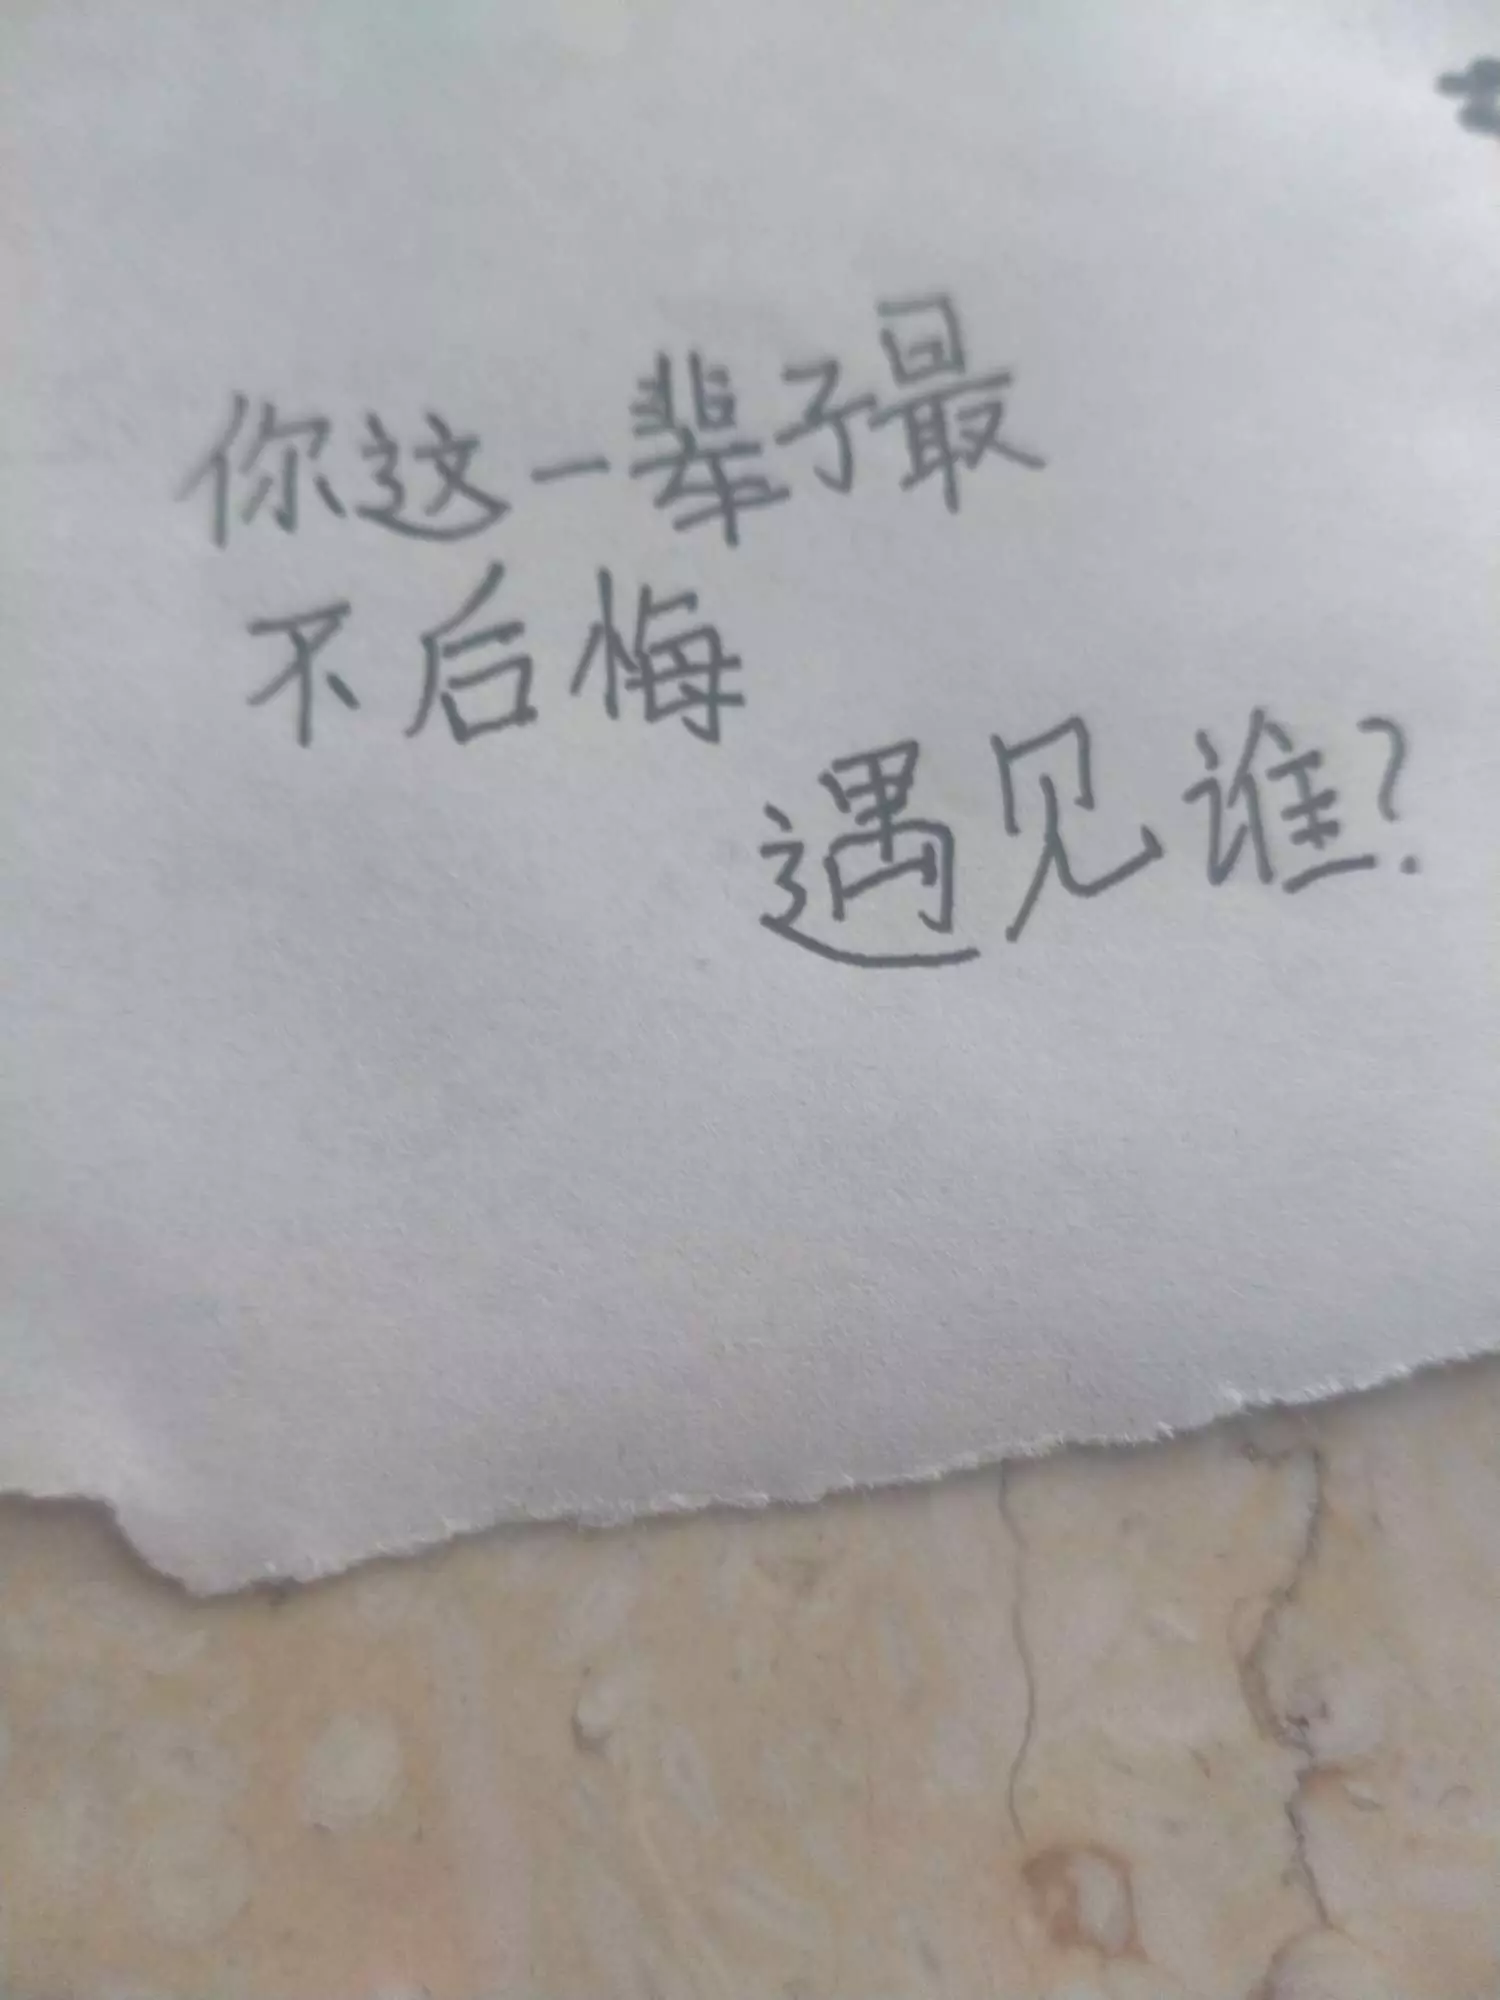 你这一辈子最
不后悔
遇见谁?